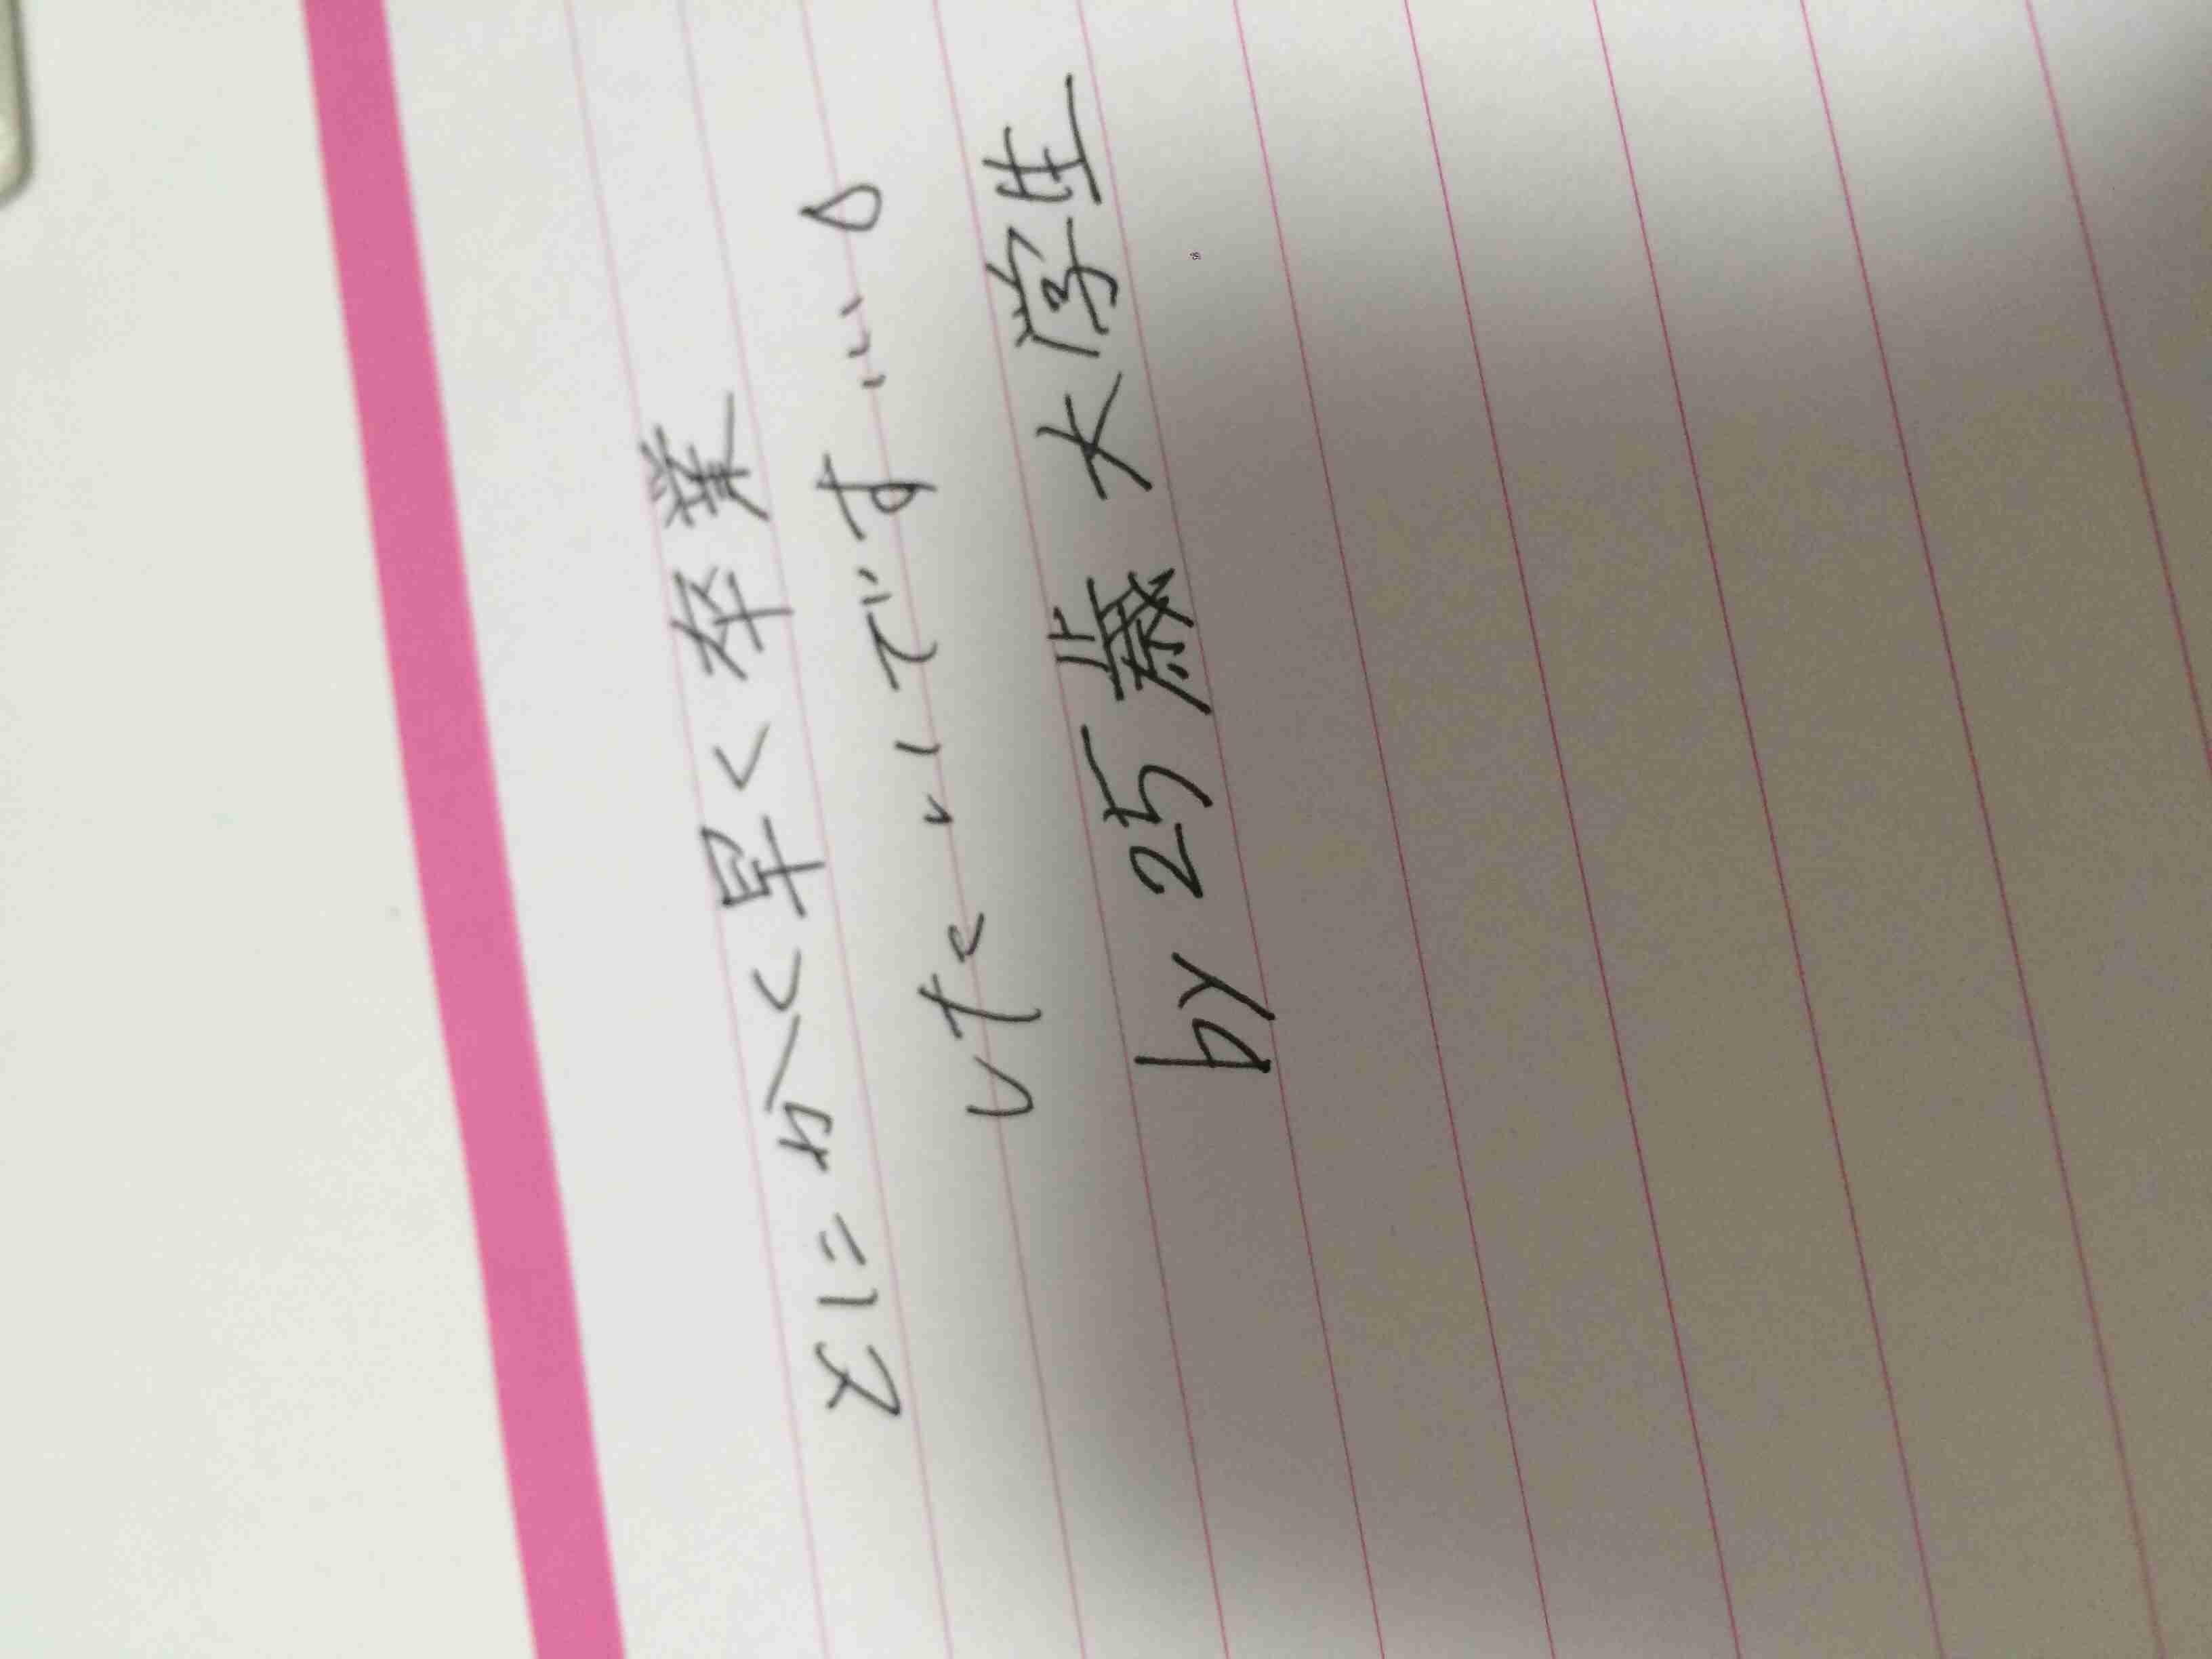 とにかく早く卒業
したいです…。
by 25歳 大学生